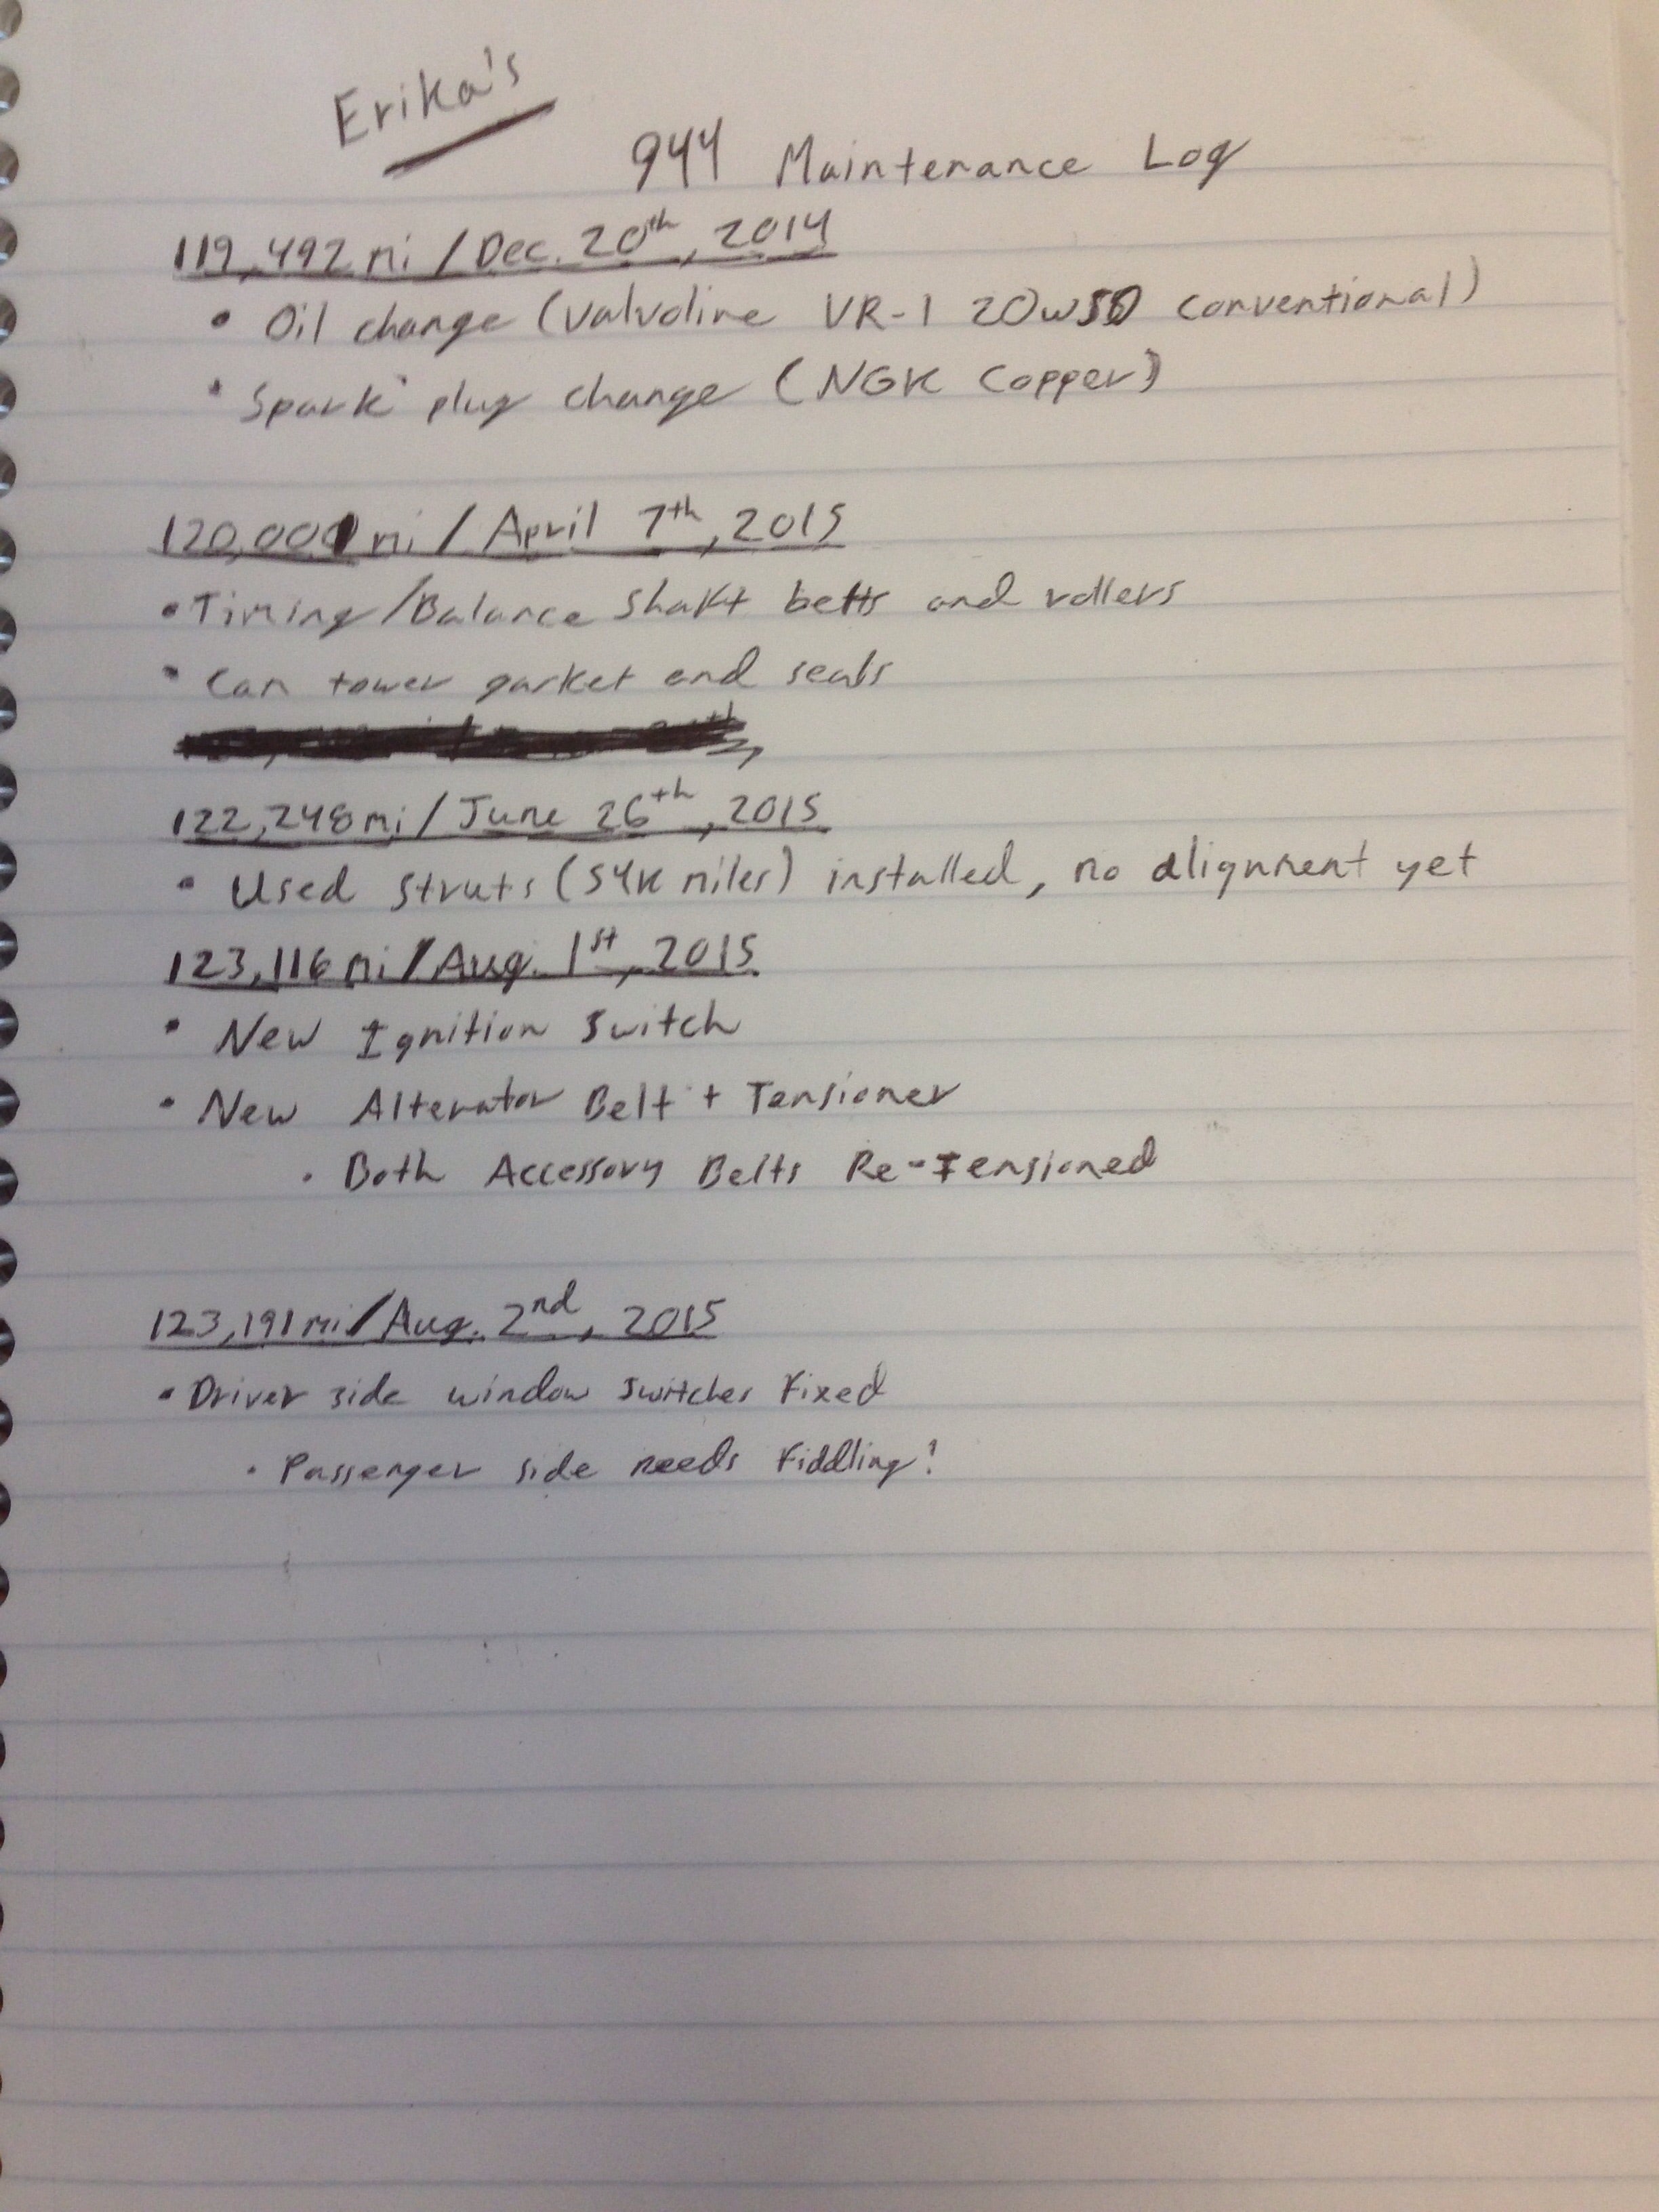 Erika's
944 Maintenance Log
119,492 mi / Dec. 20th, 2014
• Oil change (Valvoline VR-1 20w50 conventional)
• Spark plug change (NGK Copper)
120,001 mi / April 7th, 2015
• Timing/Balance shaft belts and rollers
• Cam tower gasket and seals
122,248 mi / June 26th, 2015
• Used struts (54K miles) installed, no alignment yet
123,116 mi / Aug. 1st, 2015
• New Ignition Switch
• New Alternator Belt + Tensioner
• Both Accessory Belts Re-Tensioned
123,191 mi / Aug. 2nd, 2015
• Driver side window switches fixed
• Passenger side needs fiddling!